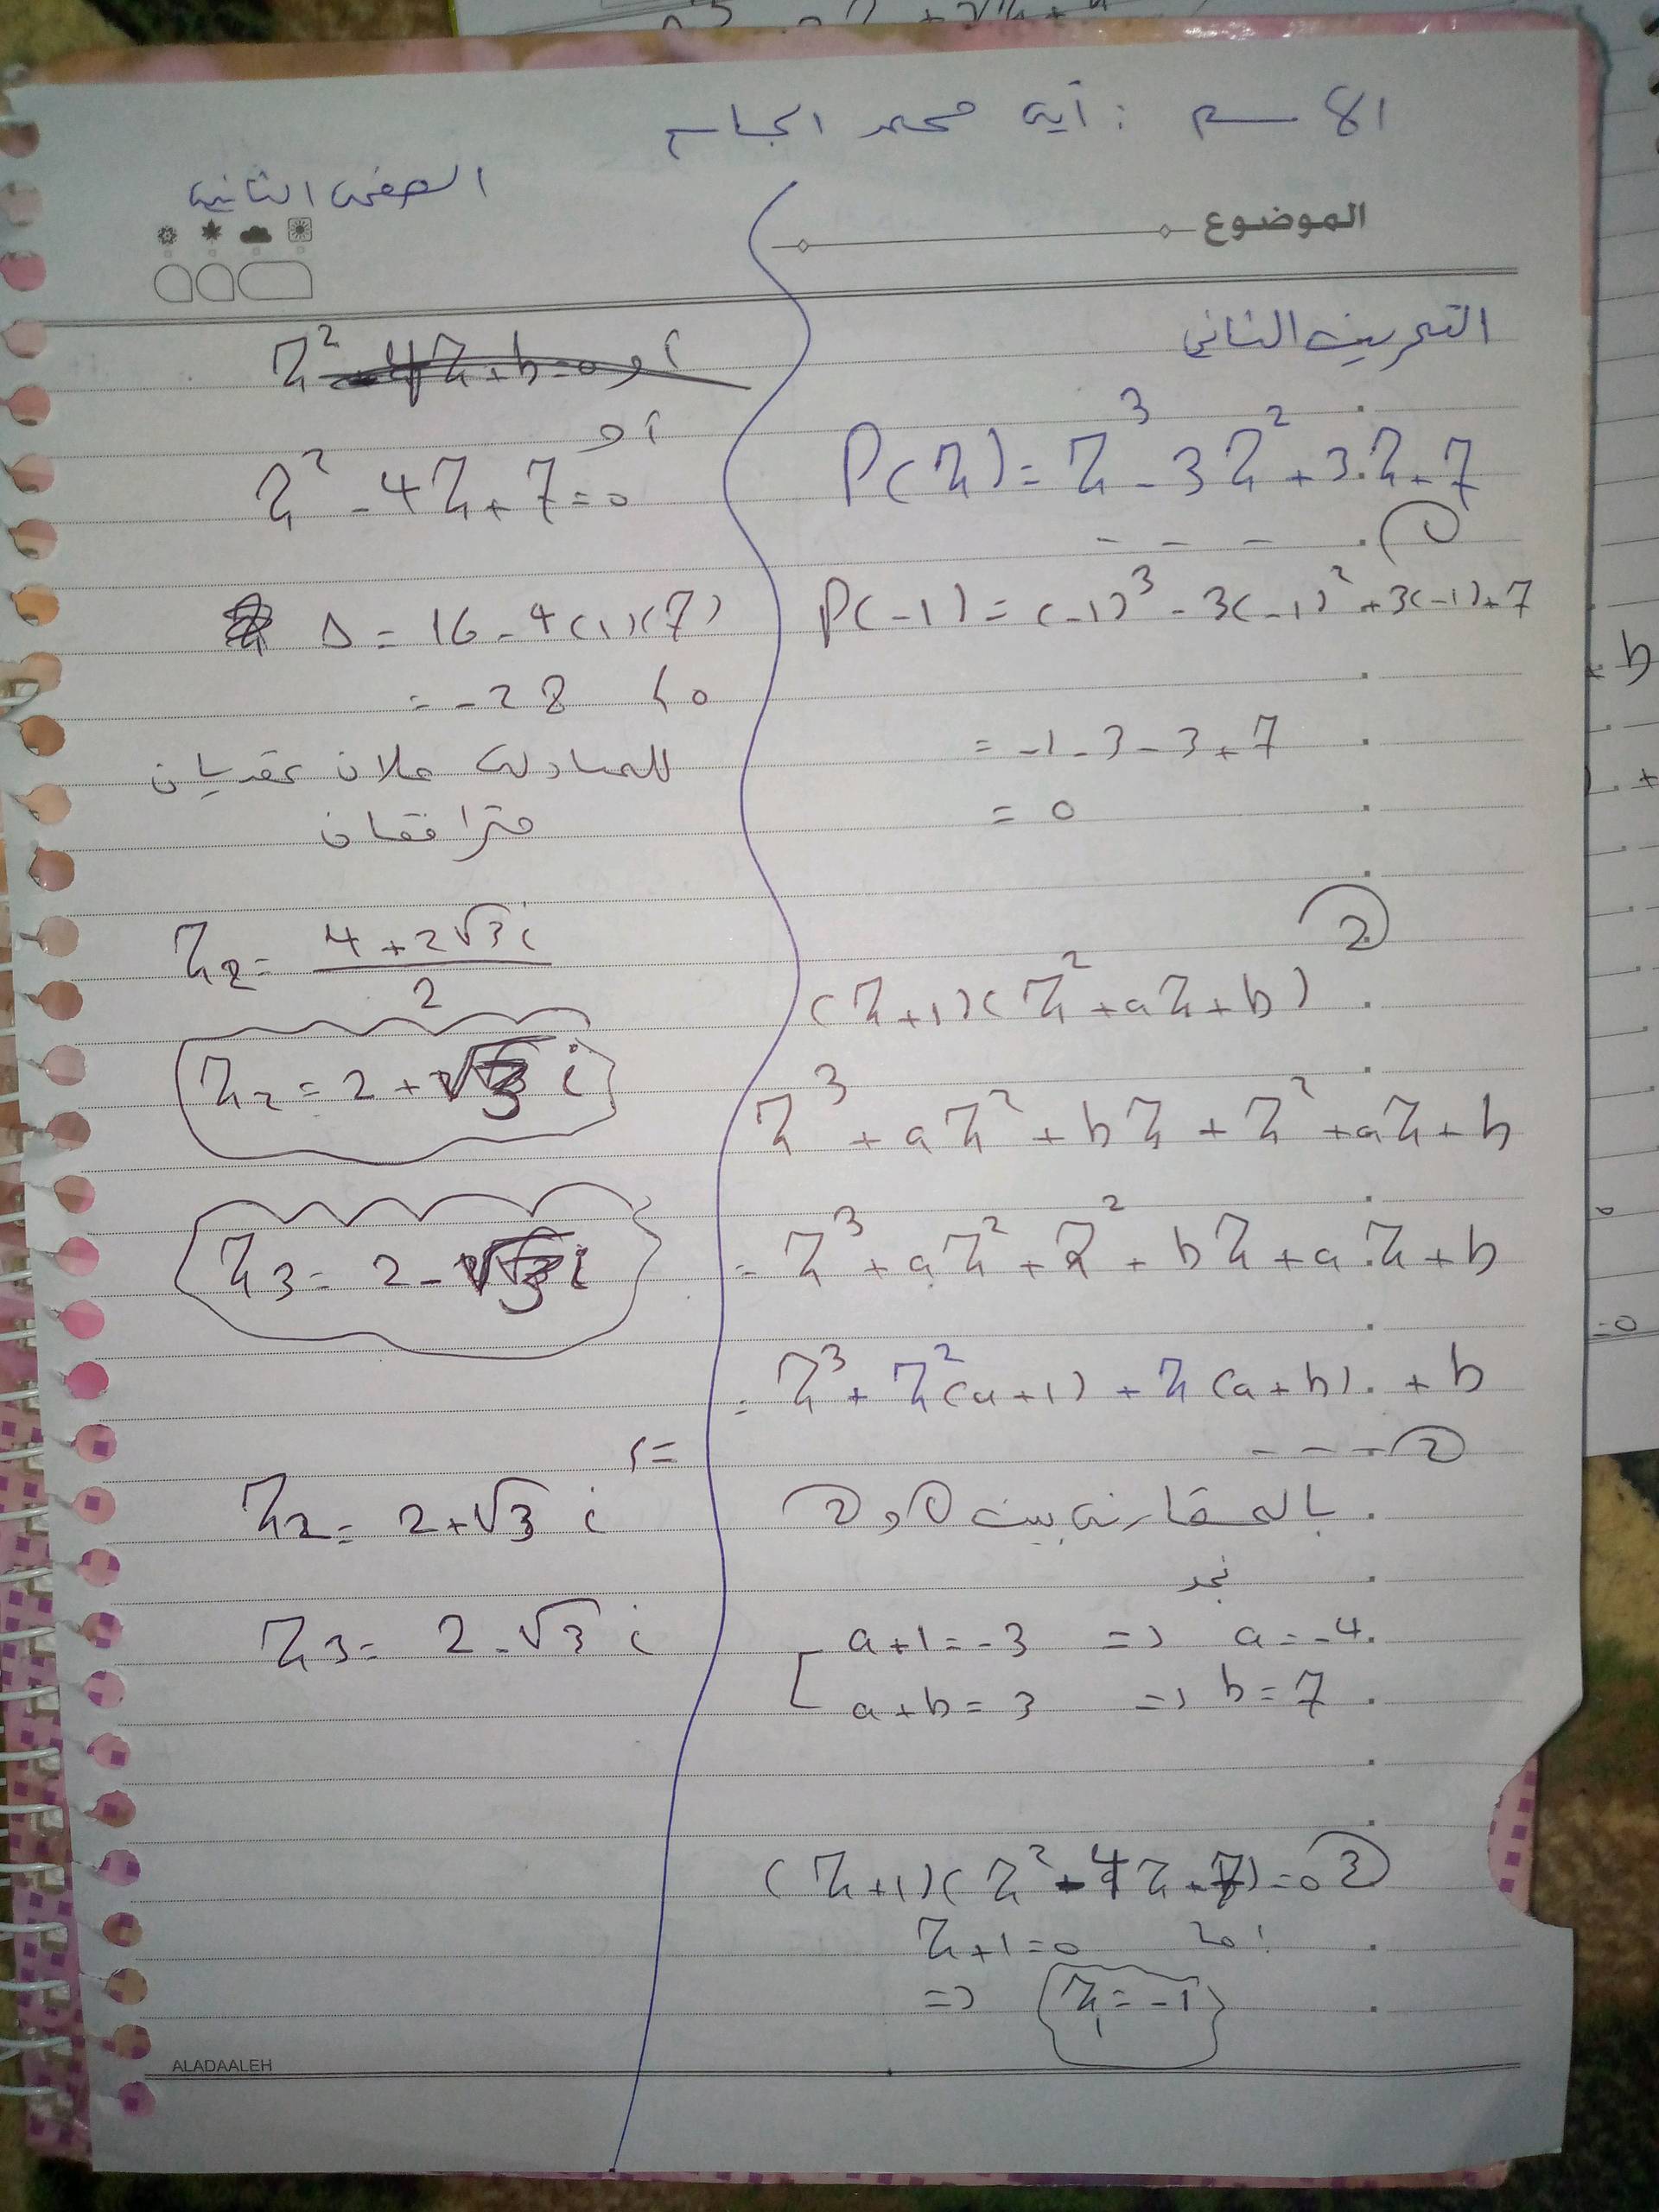 الاسم : آية محمد الجاسم
الصفحة الثانية
الموضوع
التمرين الثاني
P(z) = z³ - 3z² + 3z + 7
--- ①
P(-1) = (-1)³ - 3(-1)² + 3(-1) + 7
= -1 - 3 - 3 + 7
= 0
②
(z+1)(z² + az + b)
z³ + az² + bz + z² + az + b
= z³ + az² + z² + bz + a.z + b
= z³ + z²(a+1) + z(a+b) + b
--- ②
بالمقارنة بين ① و ②
نجد
a+1 = -3 => a = -4
a+b = 3 => b = 7
③ (z+1)(z² - 4z + 7) = 0
إما z+1 = 0
=> z₁ = -1
z² - 4z + b = 0 أو
أو
z² - 4z + 7 = 0
Δ = 16 - 4(1)(7)
= -28 < 0
للمعادلة حلان عقديان
مترافقان
z₂ = (4 + 2√3 i)/2
z₂ = 2 + √3 i
z₃ = 2 - √3 i
z₂ = 2 + √3 i
z₃ = 2 - √3 i
ALADAALEH